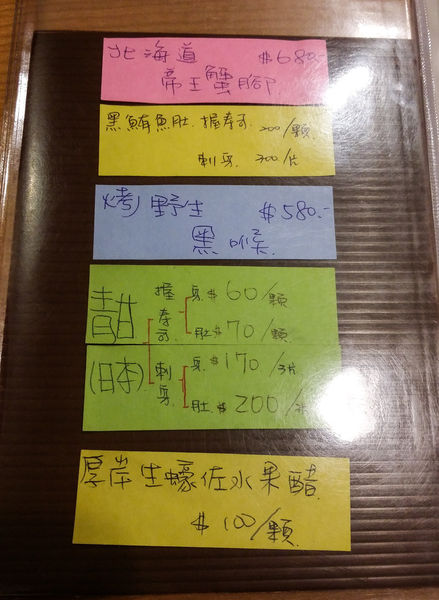 北海道 $680.-
帝王蟹腳
黑鮪魚肚 握壽司 200/顆
刺身 300/片
烤野生 $580.-
黑喉
青甘
(日本)
握壽司
身 $60/顆
肚 $70/顆
刺身
身 $170/3片
肚 $200/
厚岸生蠔佐水果醋
$100/顆